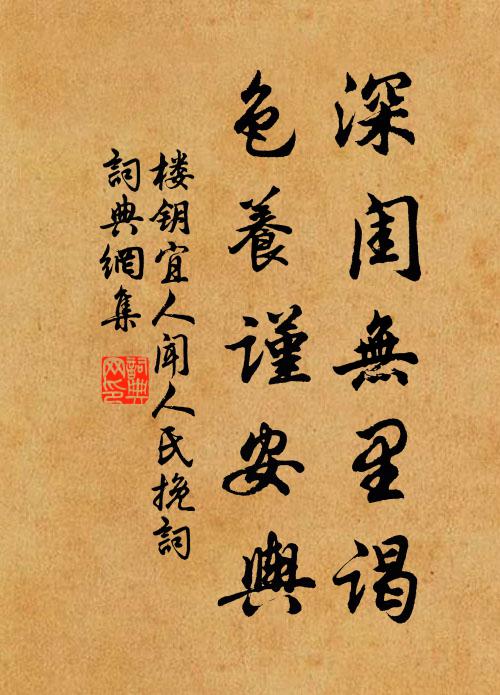 深闺無里谒
色養谨安輿
楼钥宜人闻人氏挽詞
詞典網集
詞典网印